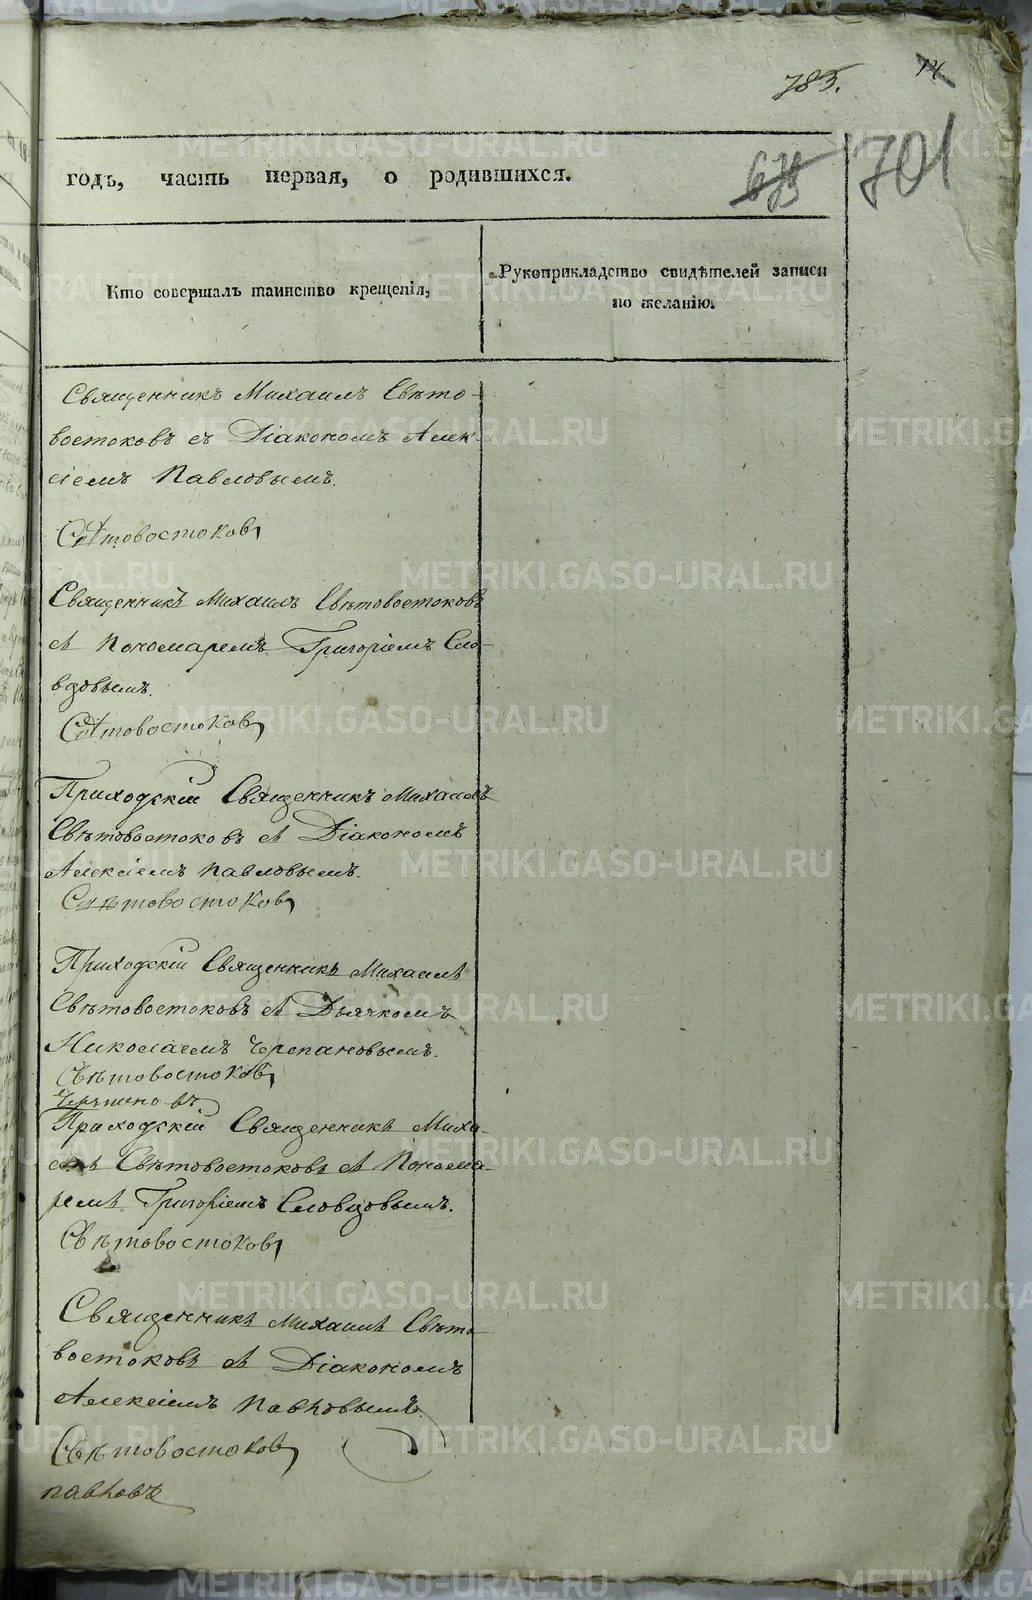 783.
14
673
701
годъ, часть первая, о родившихся.
Кто совершалъ таинство крещенія,
Рукоприкладство свидѣтелей записи
по желанію.
Священникъ Михаилъ Свѣто-
востоковъ съ Діакономъ Алек-
сіемъ Павловымъ.
Свѣтовостоковъ
Священникъ Михаилъ Свѣтовостоковъ
съ Пономаремъ Григоріемъ Сло-
вцовымъ.
Свѣтовостоковъ
Приходскій Священникъ Михаилъ
Свѣтовостоковъ съ Діакономъ
Алексіемъ Павловымъ.
Свѣтовостоковъ
Приходскій Священникъ Михаилъ
Свѣтовостоковъ съ Дьячкомъ
Николаемъ Черепановымъ.
Свѣтовостоковъ
Приходскій Священникъ Миха-
илъ Свѣтовостоковъ съ Понома-
ремъ Григоріемъ Словцовымъ.
Свѣтовостоковъ
Священникъ Михаилъ Свѣто-
востоковъ съ Діакономъ
Алексіемъ Павловымъ.
Свѣтовостоковъ
Павловъ
METRIKI.GASO-URAL.RU